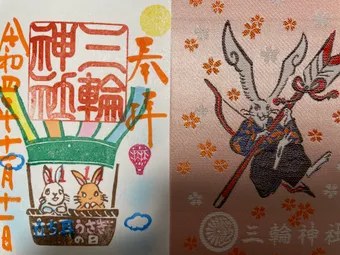 奉拝
三輪
神社
令和四年十一月十一日
うさぎ
の日
三輪神社